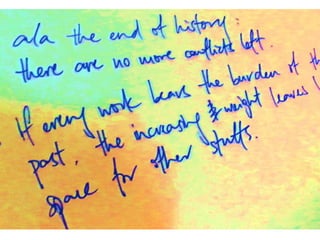 ala the end of history:
there are no more conflicts left.
If every work bears the burden of th
past, the increasing & weight leaves l
space for other stuffs.